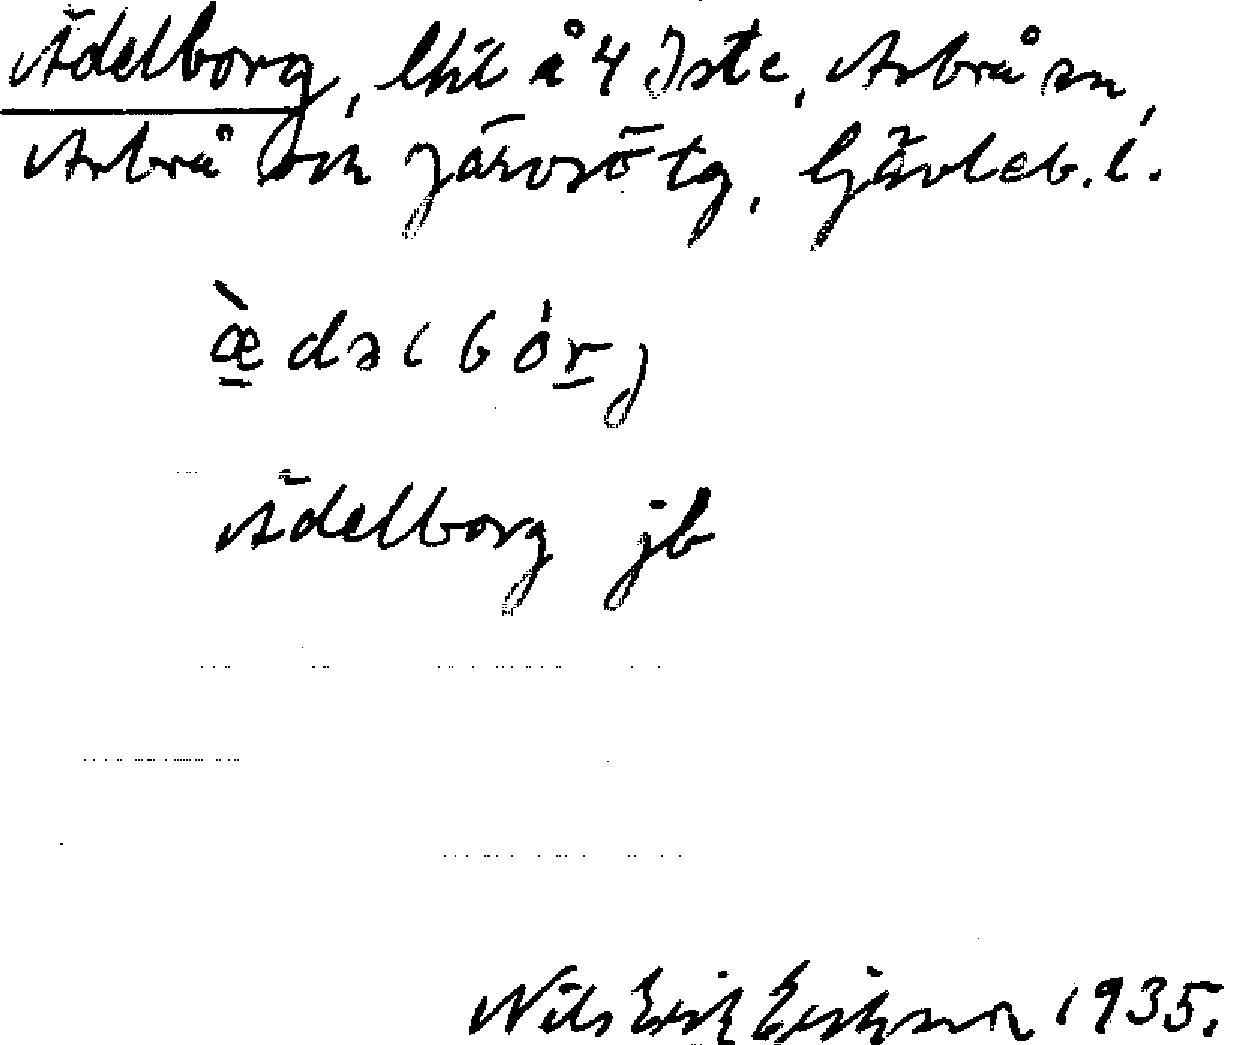 Ädelborg, lht å 4 Iste, Arbrå sn,
Arbrå och Järvsö tg, Gävleb. l.
æ̀dəlbórj
Ädelborg jb
Nils Erik Eriksson 1935.